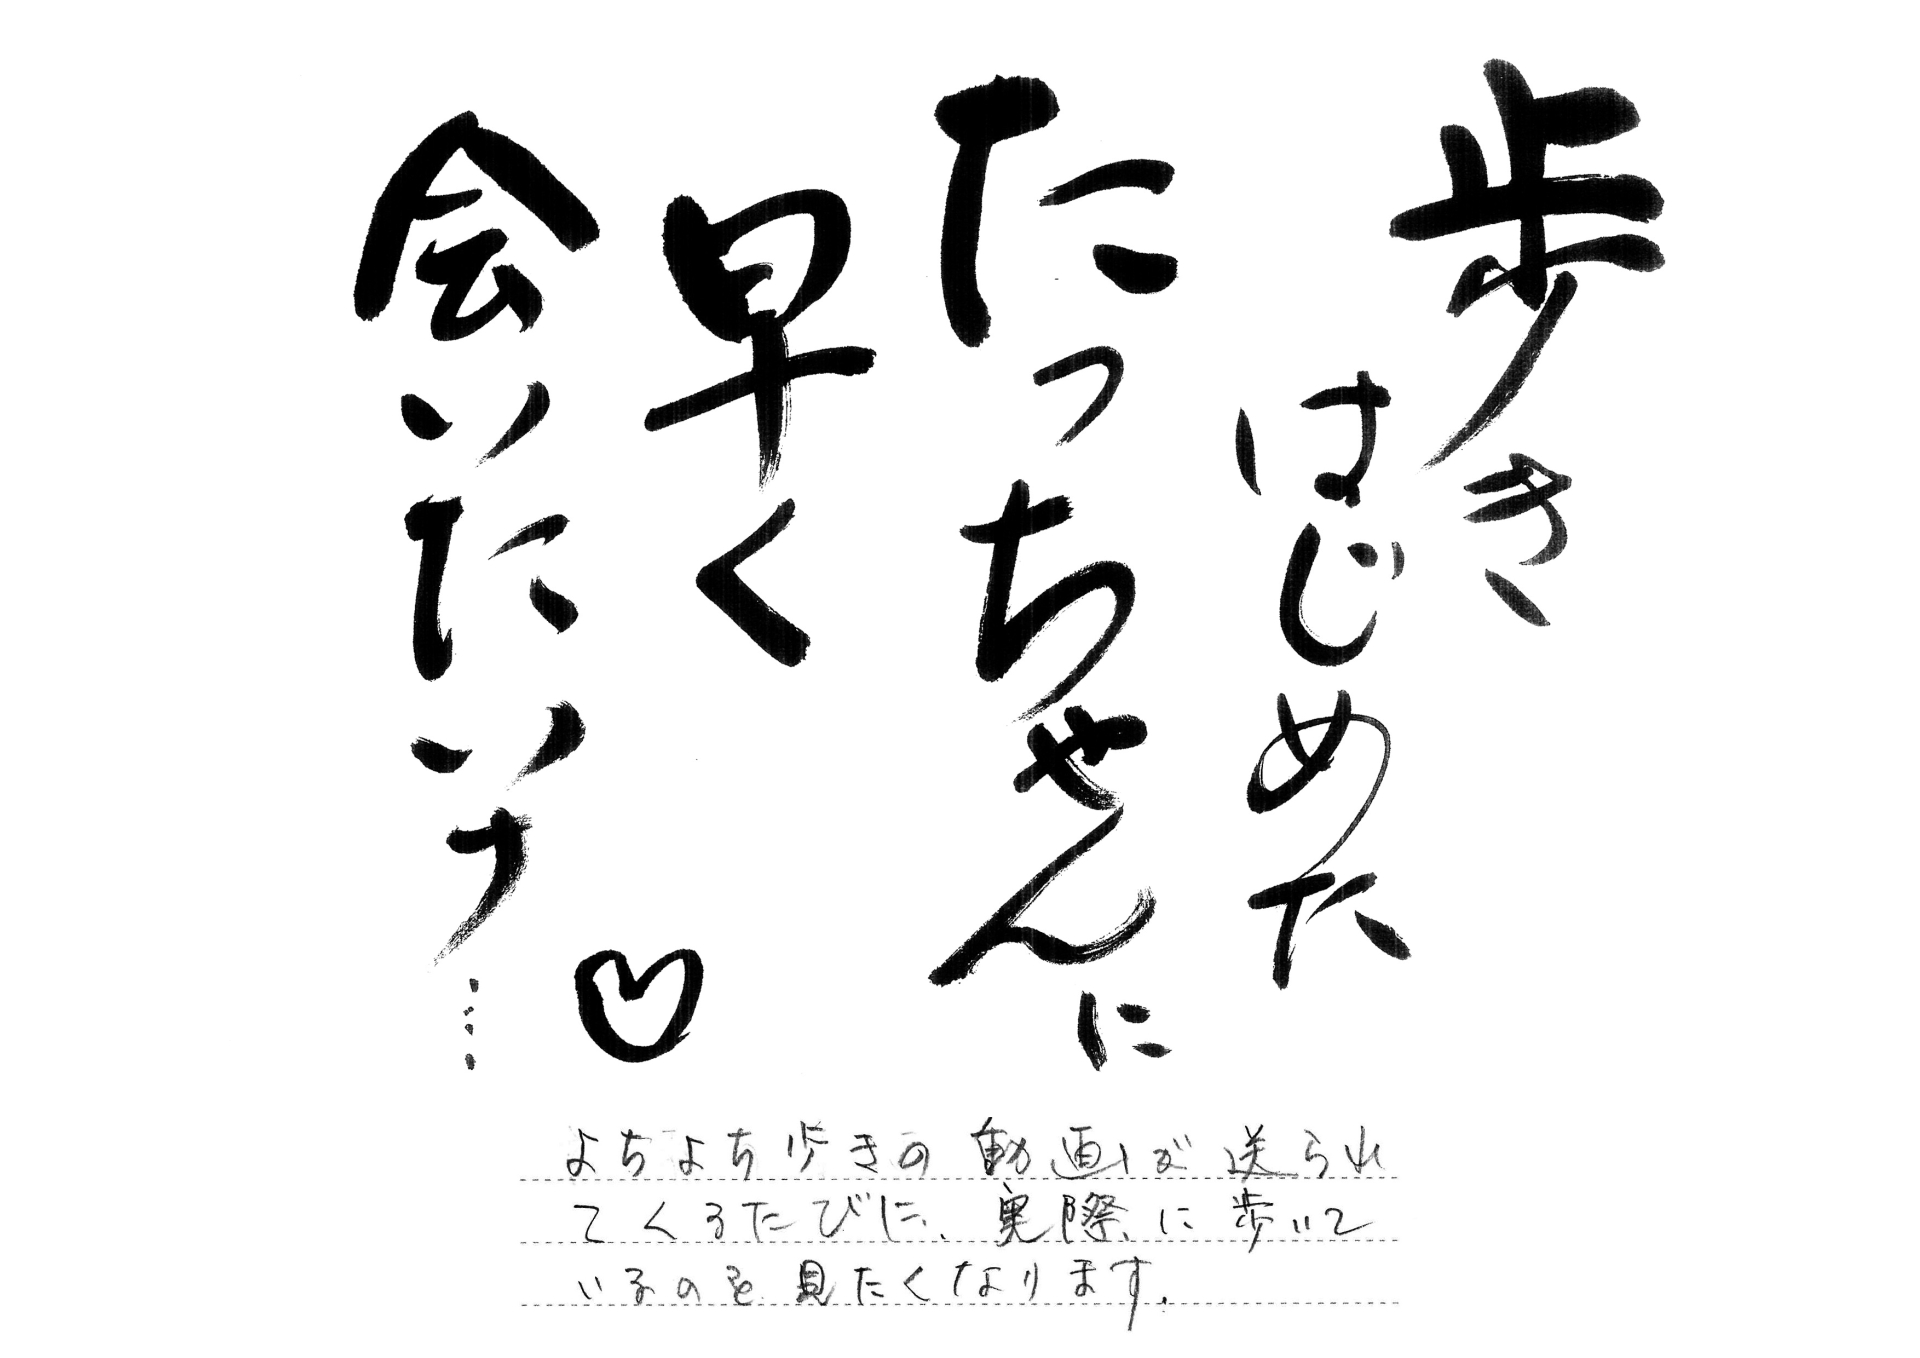 歩き
はじめた
たっちゃんに
早く
会いたいナ…♡
よちよち歩きの動画が送られ
てくるたびに、実際に歩いて
いるのを見たくなります。